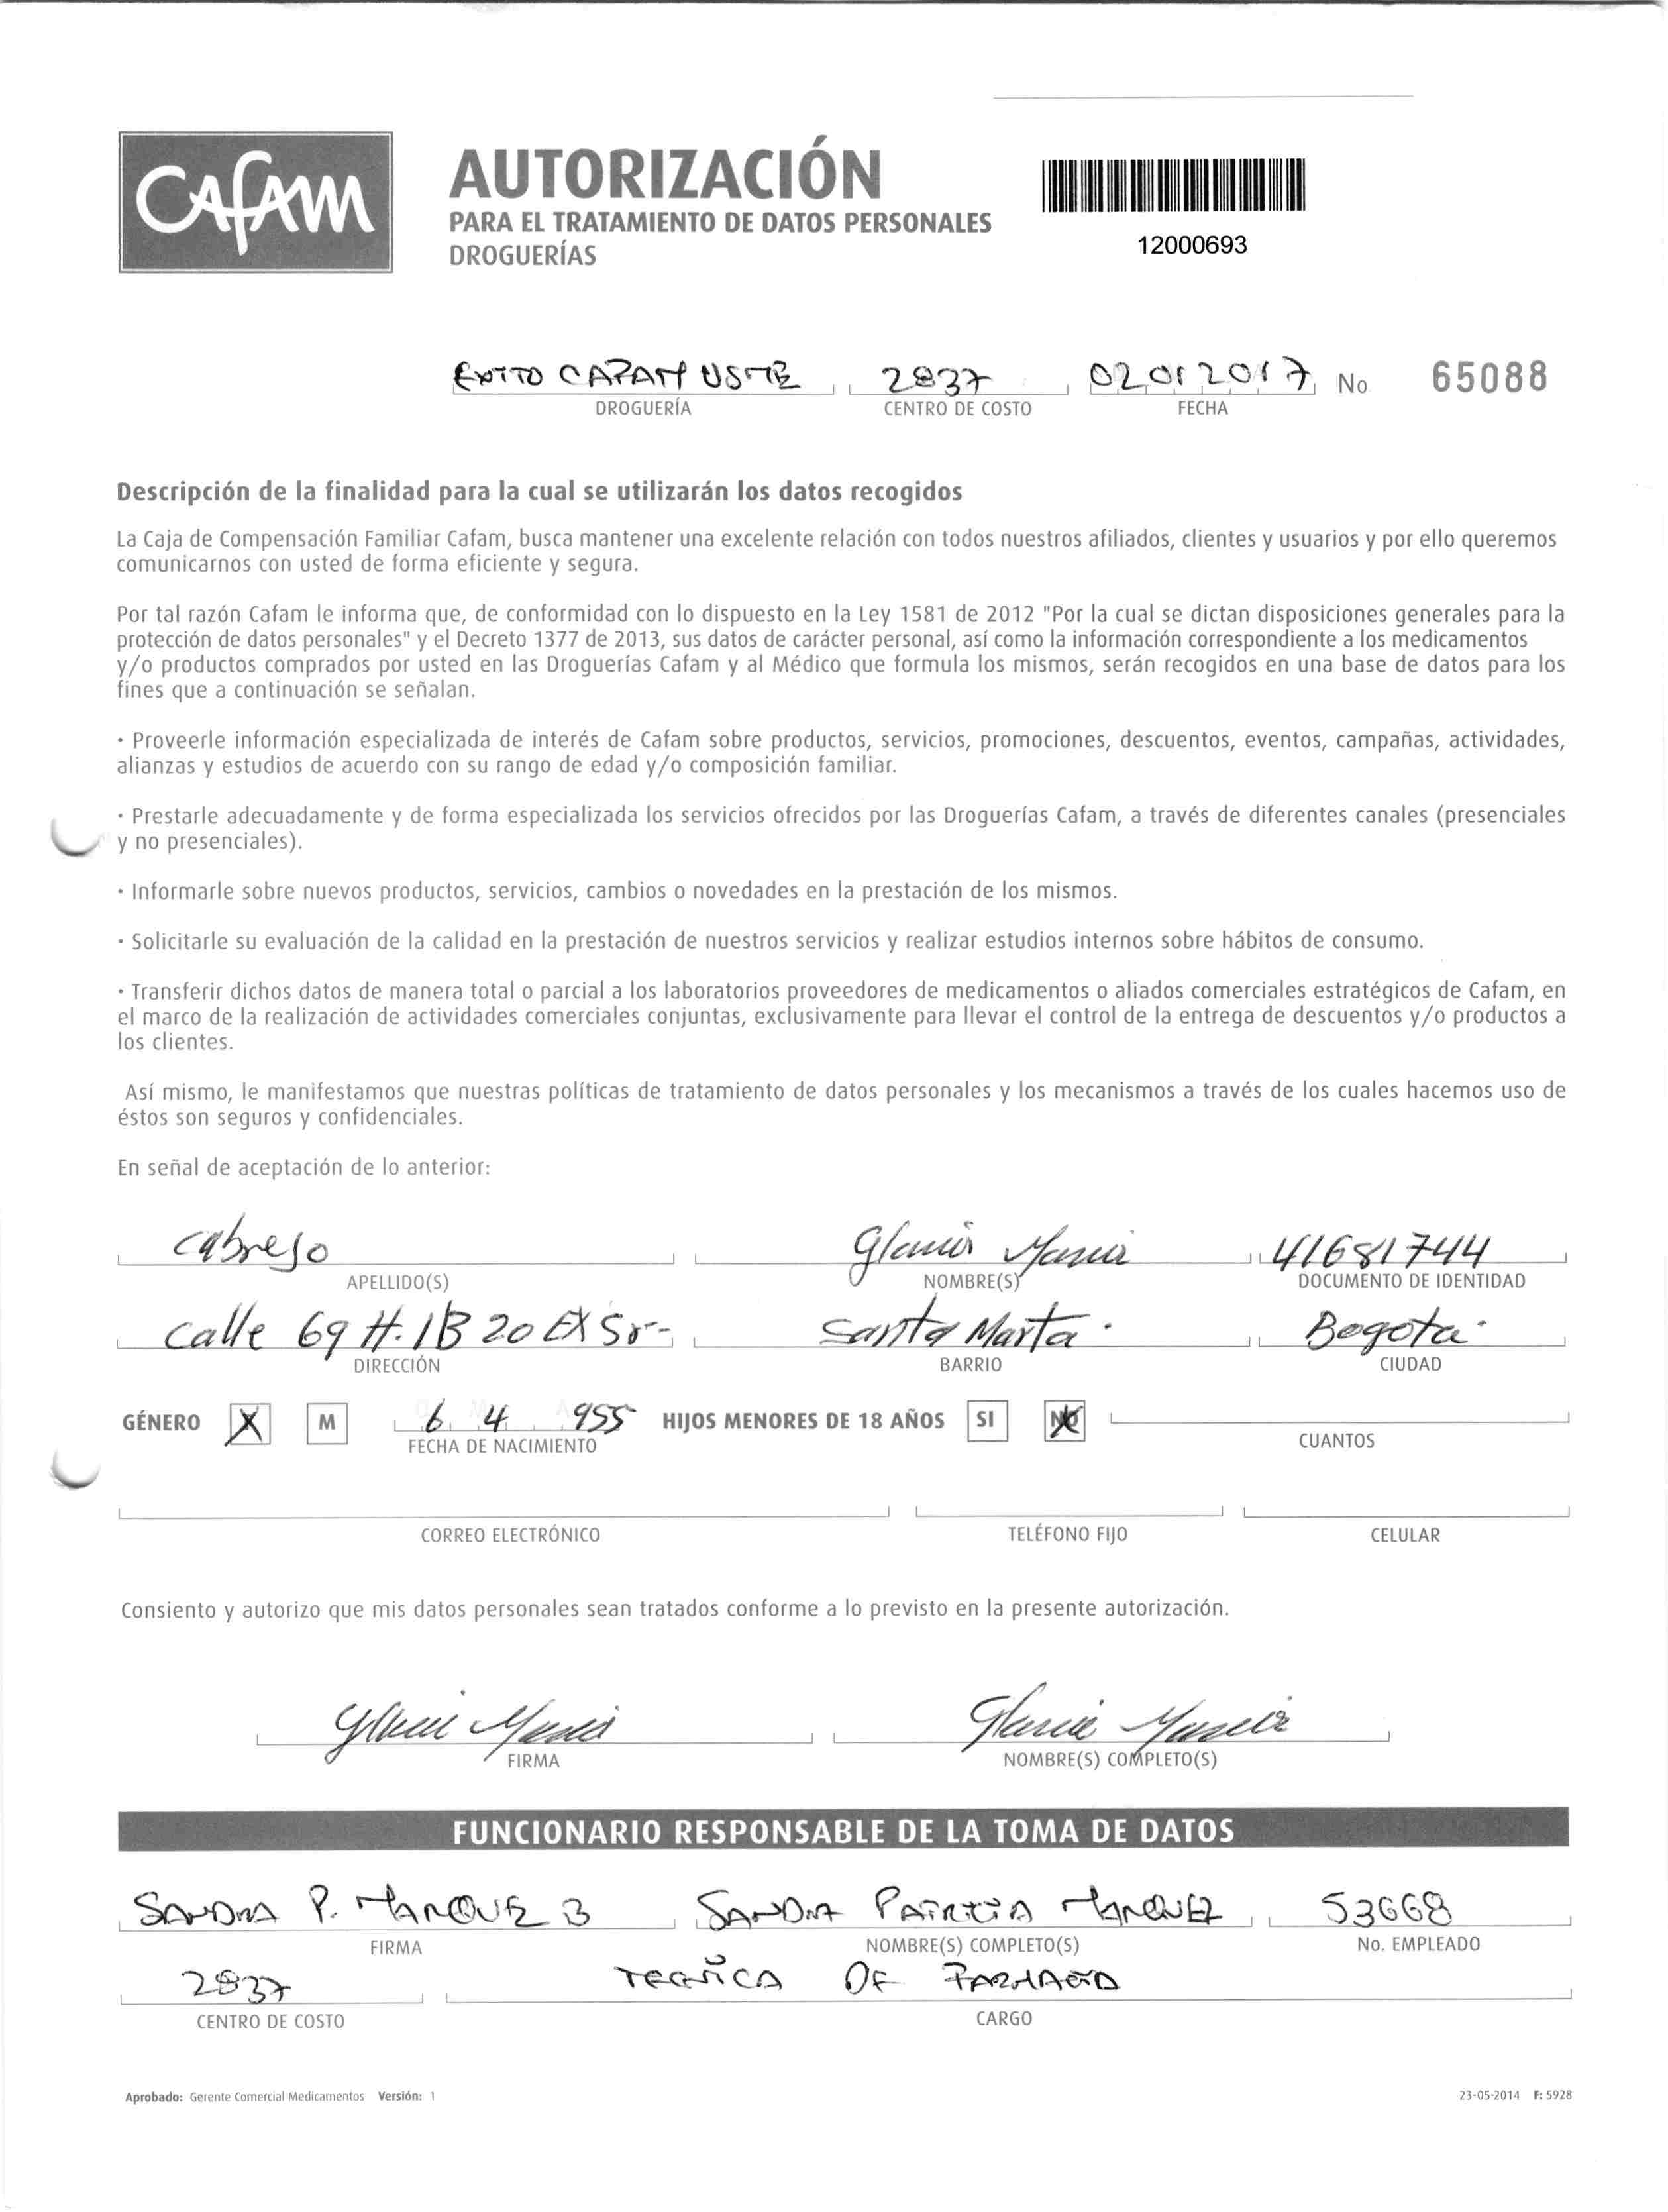 Cafam
AUTORIZACIÓN
PARA EL TRATAMIENTO DE DATOS PERSONALES
DROGUERÍAS
12000693
EXITO CAFAM USME 2837 02012017 No 65088
DROGUERÍA CENTRO DE COSTO FECHA
Descripción de la finalidad para la cual se utilizarán los datos recogidos
La Caja de Compensación Familiar Cafam, busca mantener una excelente relación con todos nuestros afiliados, clientes y usuarios y por ello queremos
comunicarnos con usted de forma eficiente y segura.
Por tal razón Cafam le informa que, de conformidad con lo dispuesto en la Ley 1581 de 2012 "Por la cual se dictan disposiciones generales para la
protección de datos personales" y el Decreto 1377 de 2013, sus datos de carácter personal, así como la información correspondiente a los medicamentos
y/o productos comprados por usted en las Droguerías Cafam y al Médico que formula los mismos, serán recogidos en una base de datos para los
fines que a continuación se señalan.
· Proveerle información especializada de interés de Cafam sobre productos, servicios, promociones, descuentos, eventos, campañas, actividades,
alianzas y estudios de acuerdo con su rango de edad y/o composición familiar.
· Prestarle adecuadamente y de forma especializada los servicios ofrecidos por las Droguerías Cafam, a través de diferentes canales (presenciales
y no presenciales).
· Informarle sobre nuevos productos, servicios, cambios o novedades en la prestación de los mismos.
· Solicitarle su evaluación de la calidad en la prestación de nuestros servicios y realizar estudios internos sobre hábitos de consumo.
· Transferir dichos datos de manera total o parcial a los laboratorios proveedores de medicamentos o aliados comerciales estratégicos de Cafam, en
el marco de la realización de actividades comerciales conjuntas, exclusivamente para llevar el control de la entrega de descuentos y/o productos a
los clientes.
Así mismo, le manifestamos que nuestras políticas de tratamiento de datos personales y los mecanismos a través de los cuales hacemos uso de
éstos son seguros y confidenciales.
En señal de aceptación de lo anterior:
Cabrejo Gloria Maria 41681744
APELLIDO(S) NOMBRE(S) DOCUMENTO DE IDENTIDAD
Calle 69 H. 1B 20 Santa Marta. Bogota.
DIRECCIÓN BARRIO CIUDAD
GÉNERO X M 6 4 955 HIJOS MENORES DE 18 AÑOS SI NO
FECHA DE NACIMIENTO CUANTOS
CORREO ELECTRÓNICO TELÉFONO FIJO CELULAR
Consiento y autorizo que mis datos personales sean tratados conforme a lo previsto en la presente autorización.
Gloria Maria Gloria Maria
FIRMA NOMBRE(S) COMPLETO(S)
FUNCIONARIO RESPONSABLE DE LA TOMA DE DATOS
SANDRA P. MARQUEZ B SANDRA PATRICIA MARQUEZ 53668
FIRMA NOMBRE(S) COMPLETO(S) No. EMPLEADO
2837 TECNICA DE FARMACIA
CENTRO DE COSTO CARGO
Aprobado: Gerente Comercial Medicamentos Versión: 1 23-05-2014 F: 5928